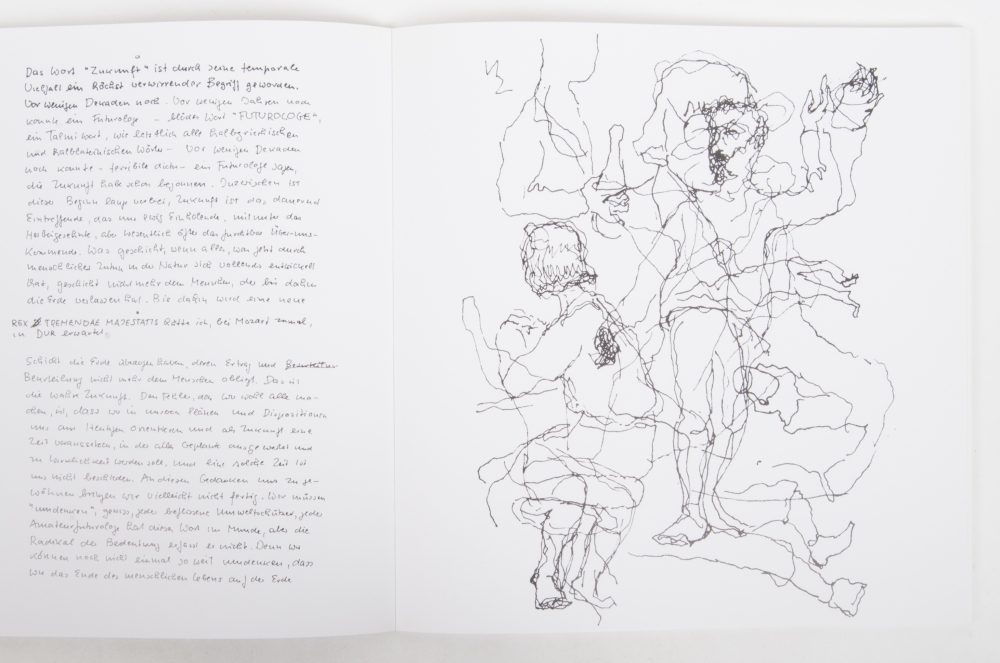 Das Wort "Zukunft" ist durch seine temporale
Vielfalt ein höchst verwirrender Begriff geworden.
Vor wenigen Dekaden noch – Vor wenigen Jahren noch
konnte ein Futurologe – blödes Wort "FUTUROLOGE",
ein Talmiwort, wie letztlich alle halbgriechischen
und halblateinischen Wörter – Vor wenigen Dekaden
noch konnte – terribile dictu – ein Futurologe sagen,
die Zukunft habe schon begonnen. Inzwischen ist
dieser Beginn lange vorbei, Zukunft ist das dauernd
Eintreffende, das uns stets Einholende, mitunter das
Herbeigesehnte, aber wesentlich öfter das furchtbar Über-uns-
Kommende. Was geschieht, wenn alles, was jetzt durch
menschliches Zutun in der Natur sich vollends entwickelt
hat, geschieht nicht mehr dem Menschen, der bis dahin
die Erde verlassen hat. Bis dahin wird eine neue
REX TREMENDAE MAJESTATIS hätte ich, bei Mozart zumal,
in DUR erwartet.
Schicht die Erde überzogen haben, deren Ertrag und
Beurteilung nicht mehr dem Menschen obliegt. Das ist
die wahre Zukunft. Der Fehler, den wir wohl alle ma-
chen, ist, dass wir in unseren Plänen und Dispositionen
uns am Heutigen orientieren und als Zukunft eine
Zeit voraussehen, in der alles Geplante ausgewertet und
zu Wirklichkeit werden soll. Und eine solche Zeit ist
uns nicht beschieden. An diesen Gedanken uns zu ge-
wöhnen bringen wir vielleicht nicht fertig. Wir müssen
"umdenken", gewiss, jeder beflissene Umweltschützer, jeder
Amateurfuturologe hat dieses Wort im Munde, aber die
Radikal der Bedeutung erfasst er nicht. Denn wir
können noch nicht einmal so weit umdenken, dass
wir das Ende des menschlichen Lebens auf der Erde